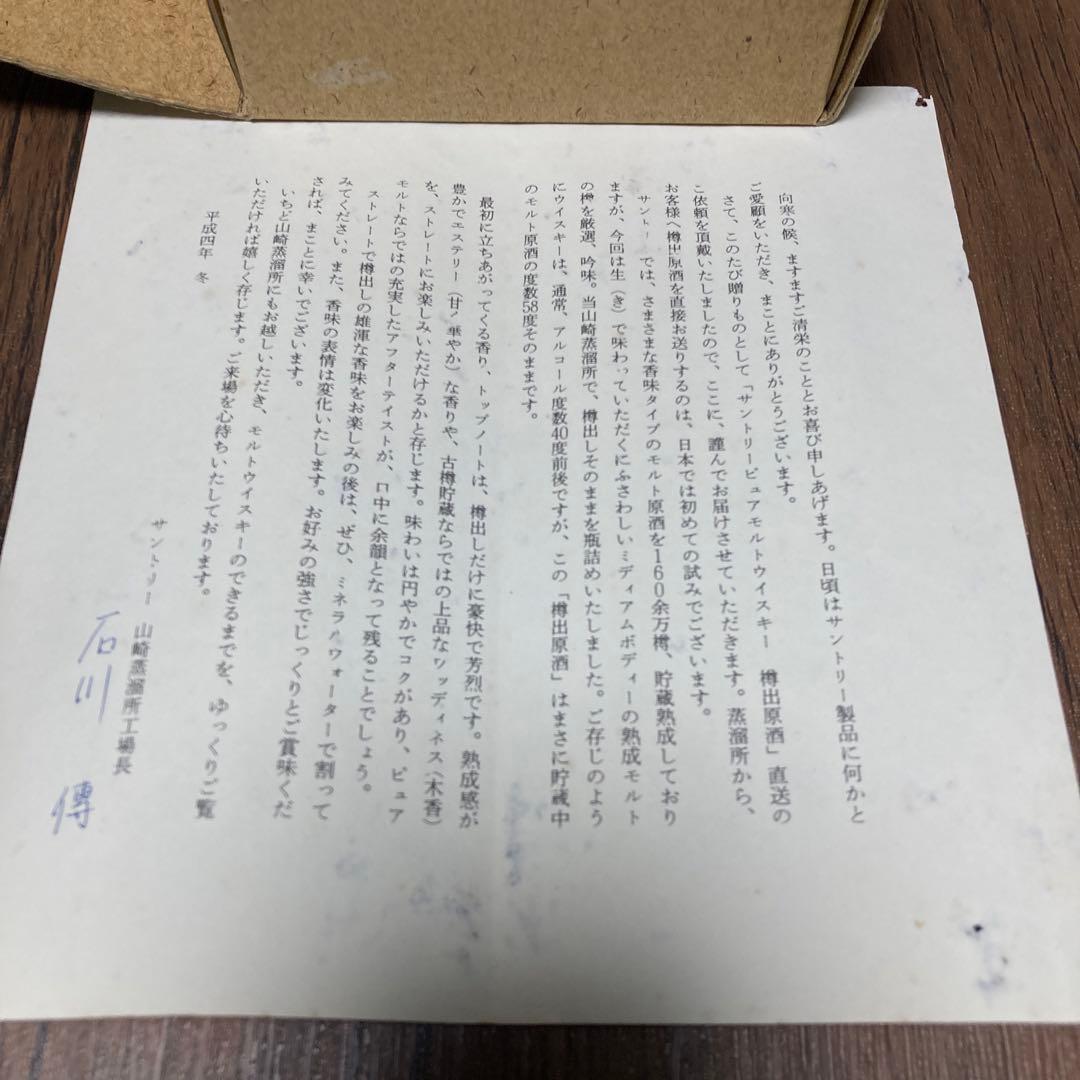 向寒の候、ますますご清栄のこととお喜び申しあげます。日頃はサントリー製品に何かと
ご愛顧をいただき、まことにありがとうございます。
さて、このたび贈りものとして「サントリーピュアモルトウイスキー 樽出原酒」直送の
ご依頼を頂戴いたしましたので、ここに、謹んでお届けさせていただきます。蒸溜所から、
お客様へ樽出原酒を直接お送りするのは、日本では初めての試みでございます。
サントリーでは、さまざまな香味タイプのモルト原酒を160余万樽、貯蔵熟成しており
ますが、今回は生(き)で味わっていただくにふさわしいミディアムボディーの熟成モルト
の樽を厳選、吟味。当山崎蒸溜所で、樽出しそのままを瓶詰めいたしました。ご存じのよう
にウイスキーは、通常、アルコール度数40度前後ですが、この「樽出原酒」はまさに貯蔵中
のモルト原酒の度数58度そのままです。
最初に立ちあがってくる香り、トップノートは、樽出しだけに豪快で芳烈です。熟成感が
豊かでエステリー(甘く華やか)な香りや、古樽貯蔵ならではの上品なウッディネス(木香)
を、ストレートにお楽しみいただけるかと存じます。味わいは円やかでコクがあり、ピュア
モルトならではの充実したアフターテイストが、口中に余韻となって残ることでしょう。
ストレートで樽出しの雄渾な香味をお楽しみの後は、ぜひ、ミネラルウォーターで割って
みてください。また、香味の表情は変化いたします。お好みの強さでじっくりとご賞味くだ
されば、まことに幸いでございます。
いちど山崎蒸溜所にもお越しいただき、モルトウイスキーのできるまでを、ゆっくりご覧
いただければ嬉しく存じます。ご来場を心待ちいたしております。
平成四年 冬
サントリー 山崎蒸溜所工場長
石川 傳